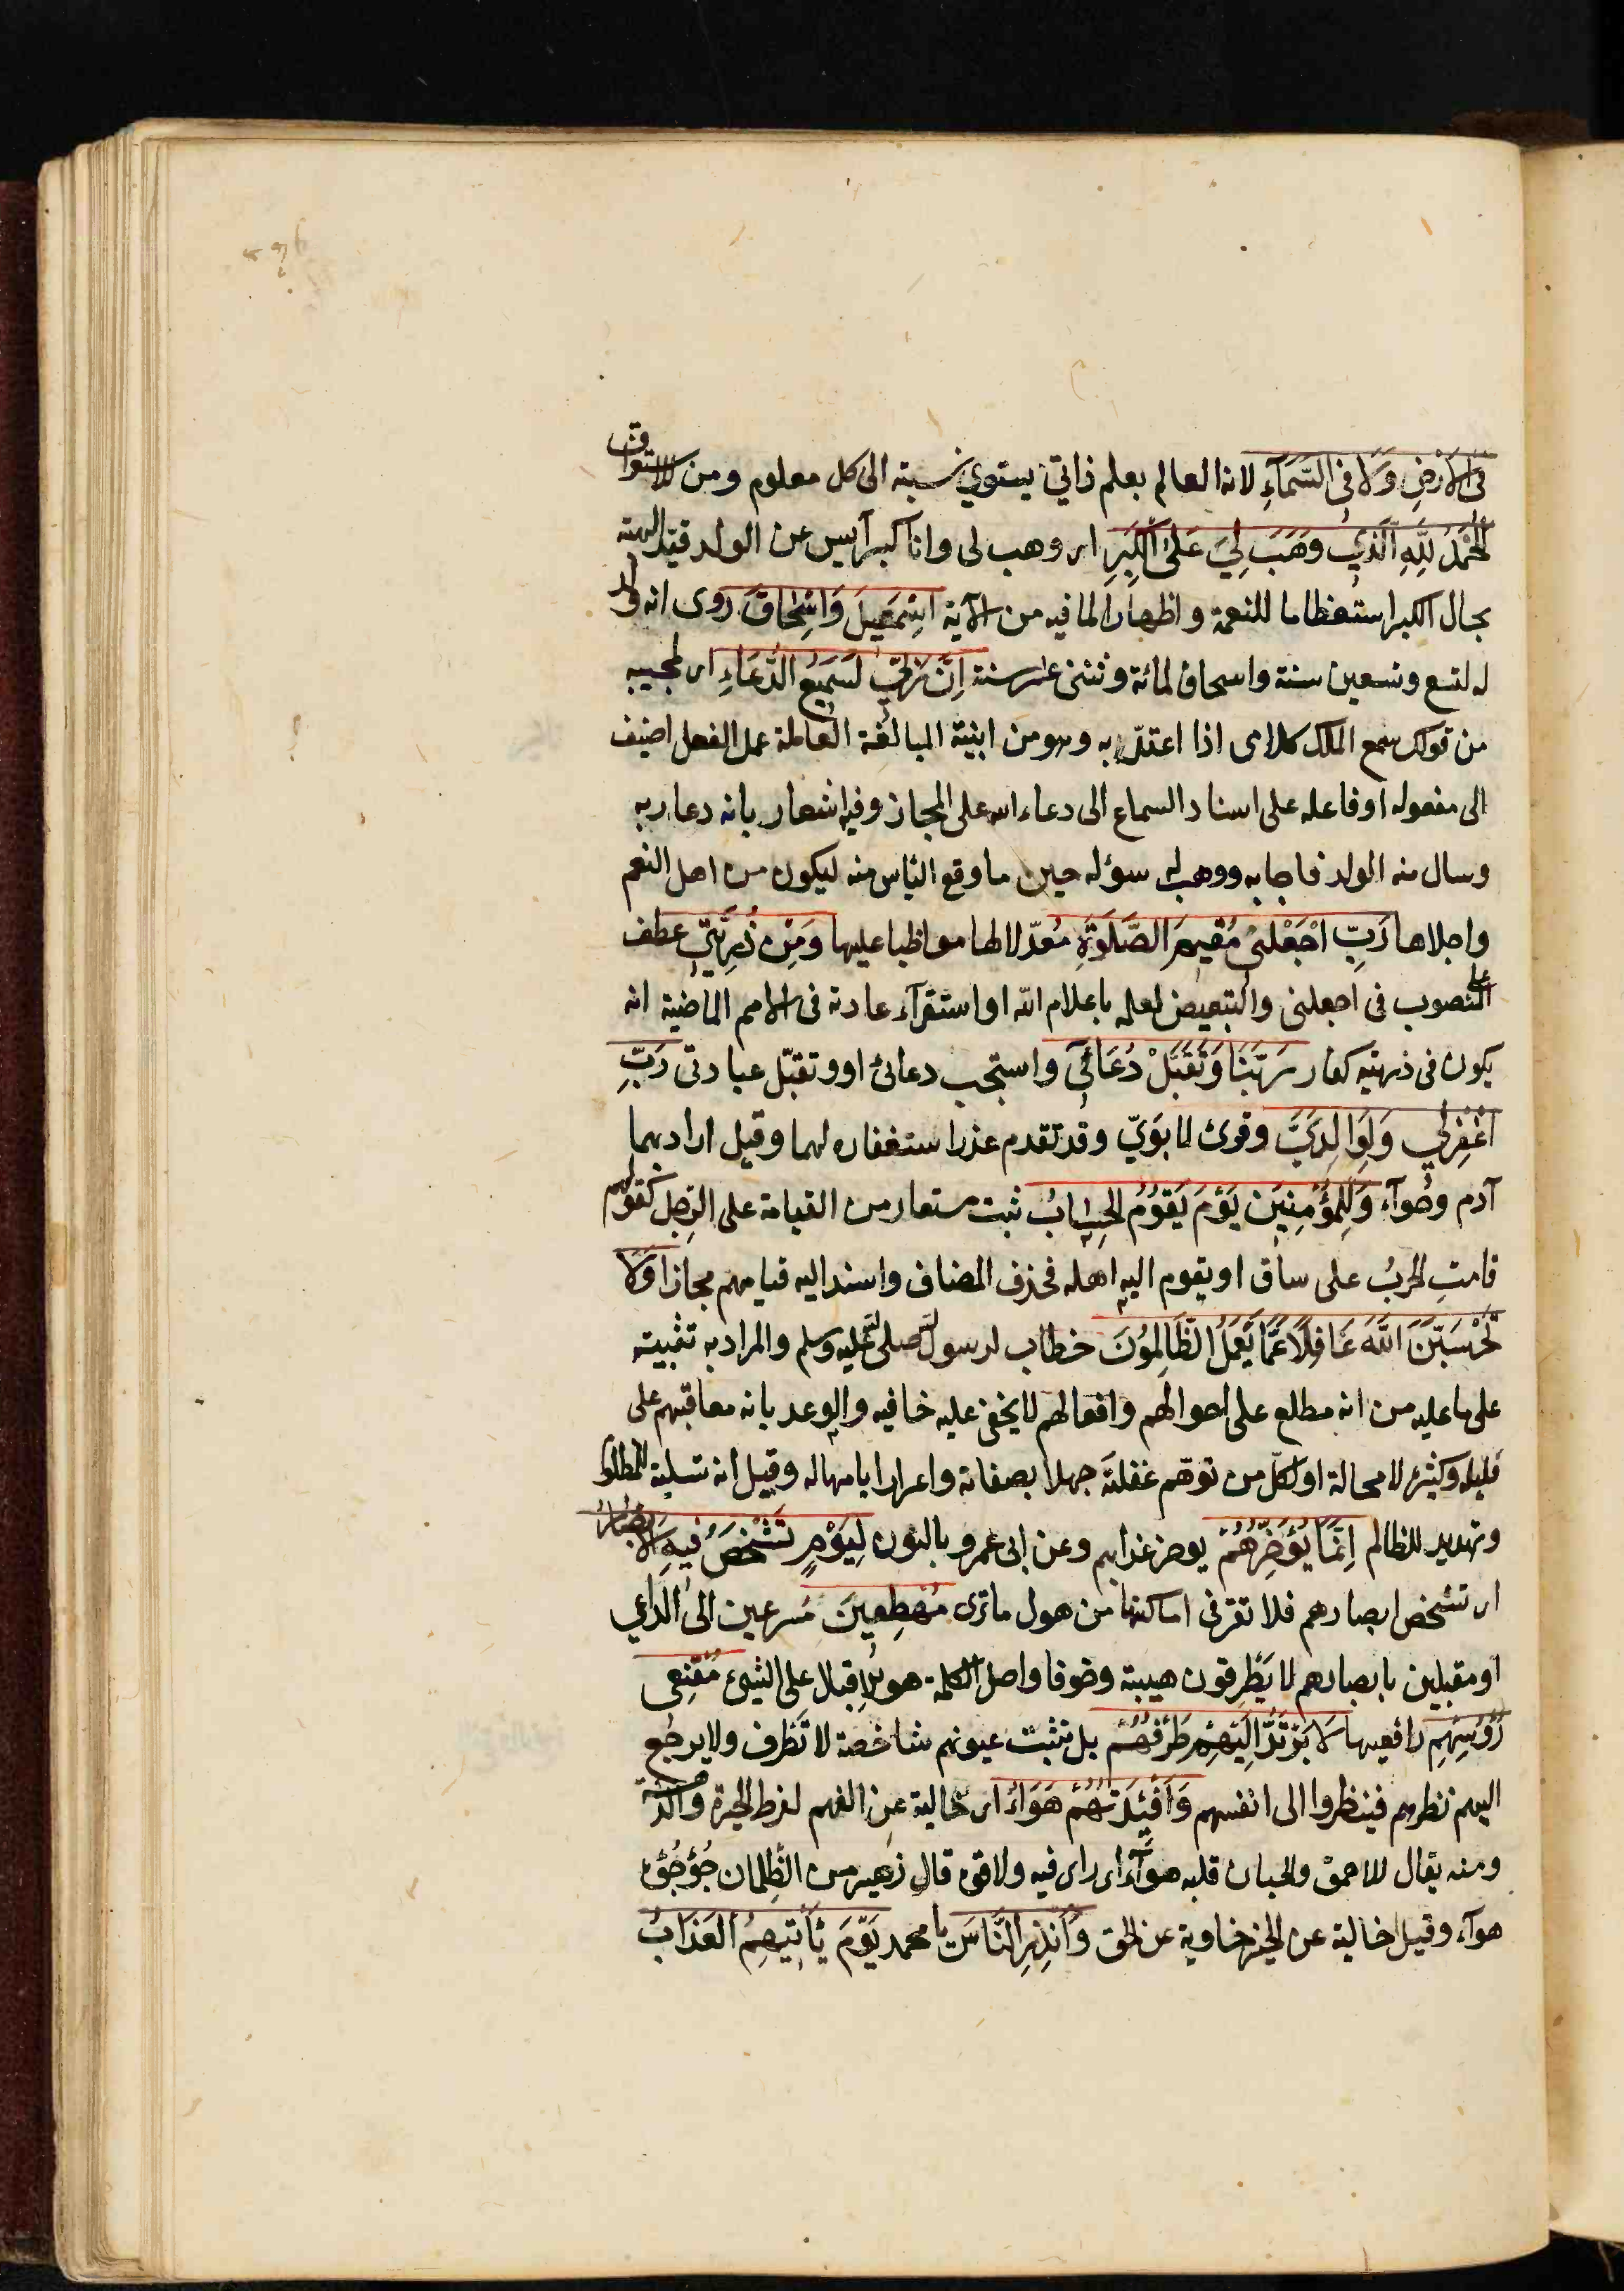 فى الارض ولا فى السَّمَآءِ لانه العالم بعلم ذاتى يستوي نسبته الى كل معلوم ومن للاستغراق
الحَمْدُ لِلّهِ الَّذِي وَهَبَ لِيَ عَلَى الْكِبَرِ اى وهب لى وانا كبير آيس عن الولد قيّد الهبة
بحال الكبر استعظاما للنعمة واظهارا لما فيه من الآية اِسْمَعِيلَ وَاِسْحَاقَ روى انه ولد
له لتسع وتسعين سنة واسحاق لمائة وثنتى عشر سنة اِنَّ رَبِّي لَسَمِيعُ الدُّعَاءِ اى لمجيبه
من قولك سمع الملك كلامى اذا اعتدّ به وهو من ابنية المبالغة العاملة عمل الفعل اضيف
الى مفعوله او فاعله على اسناد السماع الى دعاء الله على المجاز وفيه اشعار بانه دعا ربه
وسال منه الولد فاجابه ووهب له سؤله حين ما وقع الياس منه ليكون من اجل النعم
واجلاها رَبِّ اجْعَلْنِى مُقِيمَ الصَّلَوةِ مُعدّلا لها مواظبا عليها وَمِن ذُرِّيَّتِي عطف
على المنصوب فى اجعلنى والتبعيض لعلمه باعلام الله او استقرآء عادته فى الامم الماضية انه
يكون فى ذريته كفار رَبَّنَا وَتَقَبَّلْ دُعَائِي واستجب دعائى او وتقبّل عبادتى رَبِّ
اغْفِرْلِي وَلِوَالِدَيَّ وقرئ لابَوَيّ وقد تقدم عذر استغفاره لهما وقيل اراد بهما
آدم وحوآء وَلِلْمُؤْمِنِينَ يَوْمَ يَقُومُ الحِسَابُ ثبت مستعار من القيامة على الرجل كقولهم
قامتِ الحربُ على ساق او يقوم اليه اهله فحذف المضاف واسند اليه قيامهم مجازا وَلَا
تَحْسَبَنَّ اللّهَ غَافِلًا عَمَّا يَعْمَلُ الظَّالِمُونَ خطاب لرسول الله صلى الله عليه وسلم والمراد به تثبيته
على ما عليه من انه مطلع على احوالهم وافعالهم لا يخفى عليه خافيه والوعد بانه معاقبهم على
قليله وكثيره لا محالة او لكلّ من توهّم غفلتَه جهلا بصفاته واغرارا بامهاله وقيل انه تسلية للمظلوم
وتهديد للظالم اِنَّمَا يُؤَخِّرُهُمْ يوخر عذابهم وعن ابى عمرو بالنون لِيَوْمٍ تَشْخَصُ فِيهِ الاَبْصَارُ
اى تشخص ابصارهم فلا تقر فى اماكنها من هول ما ترى مُهْطِعِينَ مُسرعين الى الداعي
او مقبلين بابصارهم لا يَطرفون هيبة وخوفا واصل الكلمة هو الاقبال على الشيئ مُقْنِعِى
رُؤسِهِم رافعيها لَا يَرْتَدُّ اِلَيْهِمْ طَرْفُهُمْ بل تثبت عيونهم شاخصة لا تَطرف ولا يرجع
اليهم نظرهم فينظروا الى انفسهم وَاَفْئِدَتُهُمْ هَوَاءٌ اى خالية عن الفهم لفرط الحيرة والدهشة
ومنه يقال للاحمق والجبان قلبه هوآء اى لا راى فيه ولا قوة قال زهير من الظلمان جُؤجُؤه
هوآء وقيل خالية عن الخير خاوية عن الحق وَاَنْذِرِ النَّاسَ يا محمد يَوْمَ يَأتِيهِمُ العَذَابُ